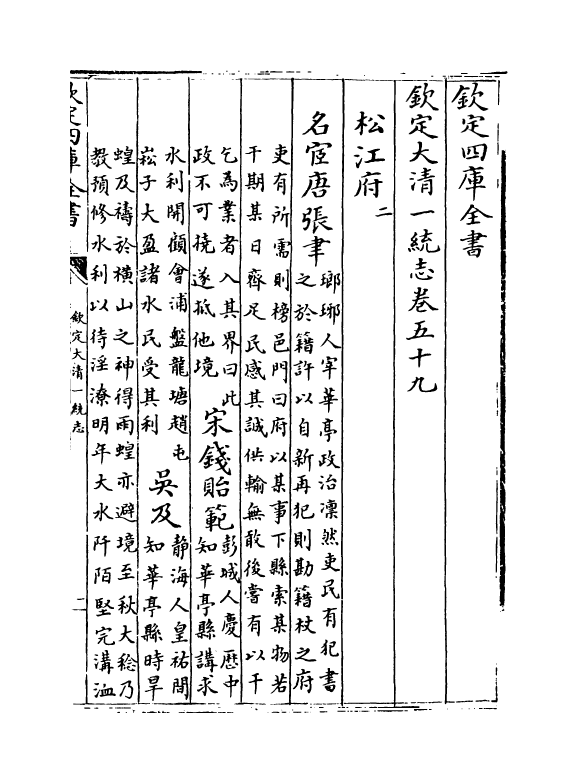 欽定四庫全書
欽定大清一統志卷五十九
松江府二
名宦唐張聿
瑯琊人宰華亭政治凜然吏民有犯書
之於籍許以自新再犯則勘籍杖之府
吏有所需則榜邑門曰府以某事下縣索某物若
干期某日齊足民感其誠供輸無敢後嘗有以干
乞為業者入其界曰此
政不可撓遂抵他境
宋錢貽範
彭城人慶歷中
知華亭縣講求
水利開顧會浦盤龍塘趙屯
崧子大盈諸水民受其利
吳及
靜海人皇祐間
知華亭縣時旱
蝗及禱於橫山之神得雨蝗亦避境至秋大稔乃
教預修水利以待淫潦明年大水阡陌堅完溝洫
欽定四庫全書
欽定大清一統志
二